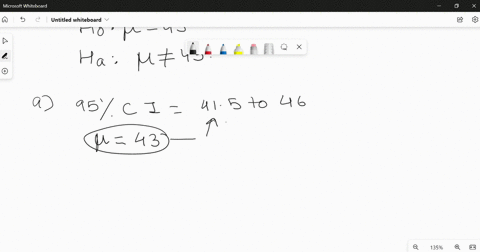 Microsoft Whiteboard
Untitled whiteboard
Ho: μ = 43
Ha: μ ≠ 43.
a) 95% C I = 41.5 to 46
μ = 43
135%